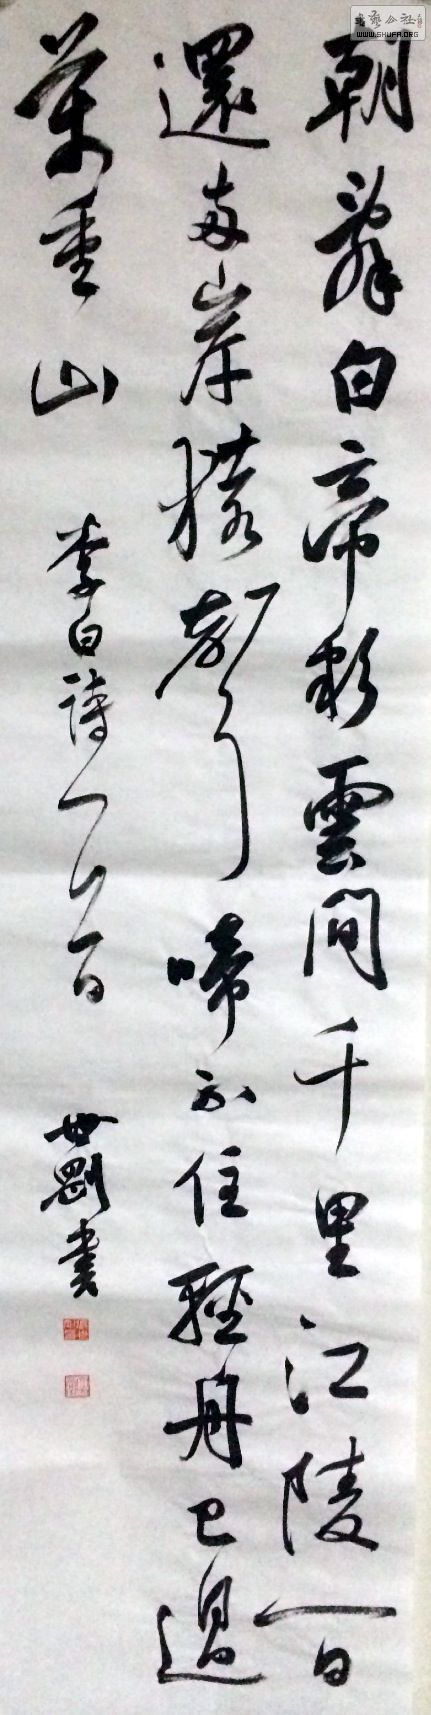 書藝公社
WWW.SHUFA.ORG
朝辭白帝彩雲間千里江陵一日
還兩岸猿聲啼不住輕舟已過
萬重山 李白詩一首 世剛書